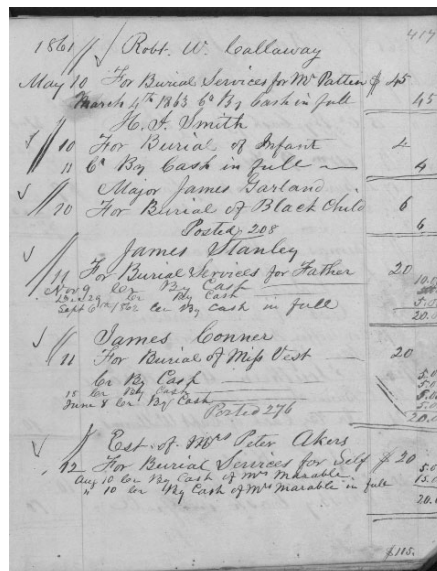 417
1861 Robt. W. Callaway
May 10 For Burial Services for Mr Patten $ 45
March 4th 1863 Cr By Cash in full 45
H. F. Smith
10 For Burial of Infant 4
11 Cr By Cash in full 4
Major James Garland
10 For Burial of Black Child 6
Posted 208 6
James Stanley
11 For Burial Services for Father 20
Nov 9 Cr By Cash 10.0
Cr By Cash
Sept 6th 1862 Cr By Cash in full
20.0
James Conner
11 For Burial of Miss Vest 20
Cr By Cash 5.0
15 Cr By Cash
June 8 Cr By Cash 5.0
Posted 276 20.0
Est. of Mrs Peter Akers
12 For Burial Services for Self $ 20
Aug 10 Cr By Cash of Mrs Marable 5.0
" 10 Cr By Cash of Mrs Marable in full 15.0
20.0
$115.